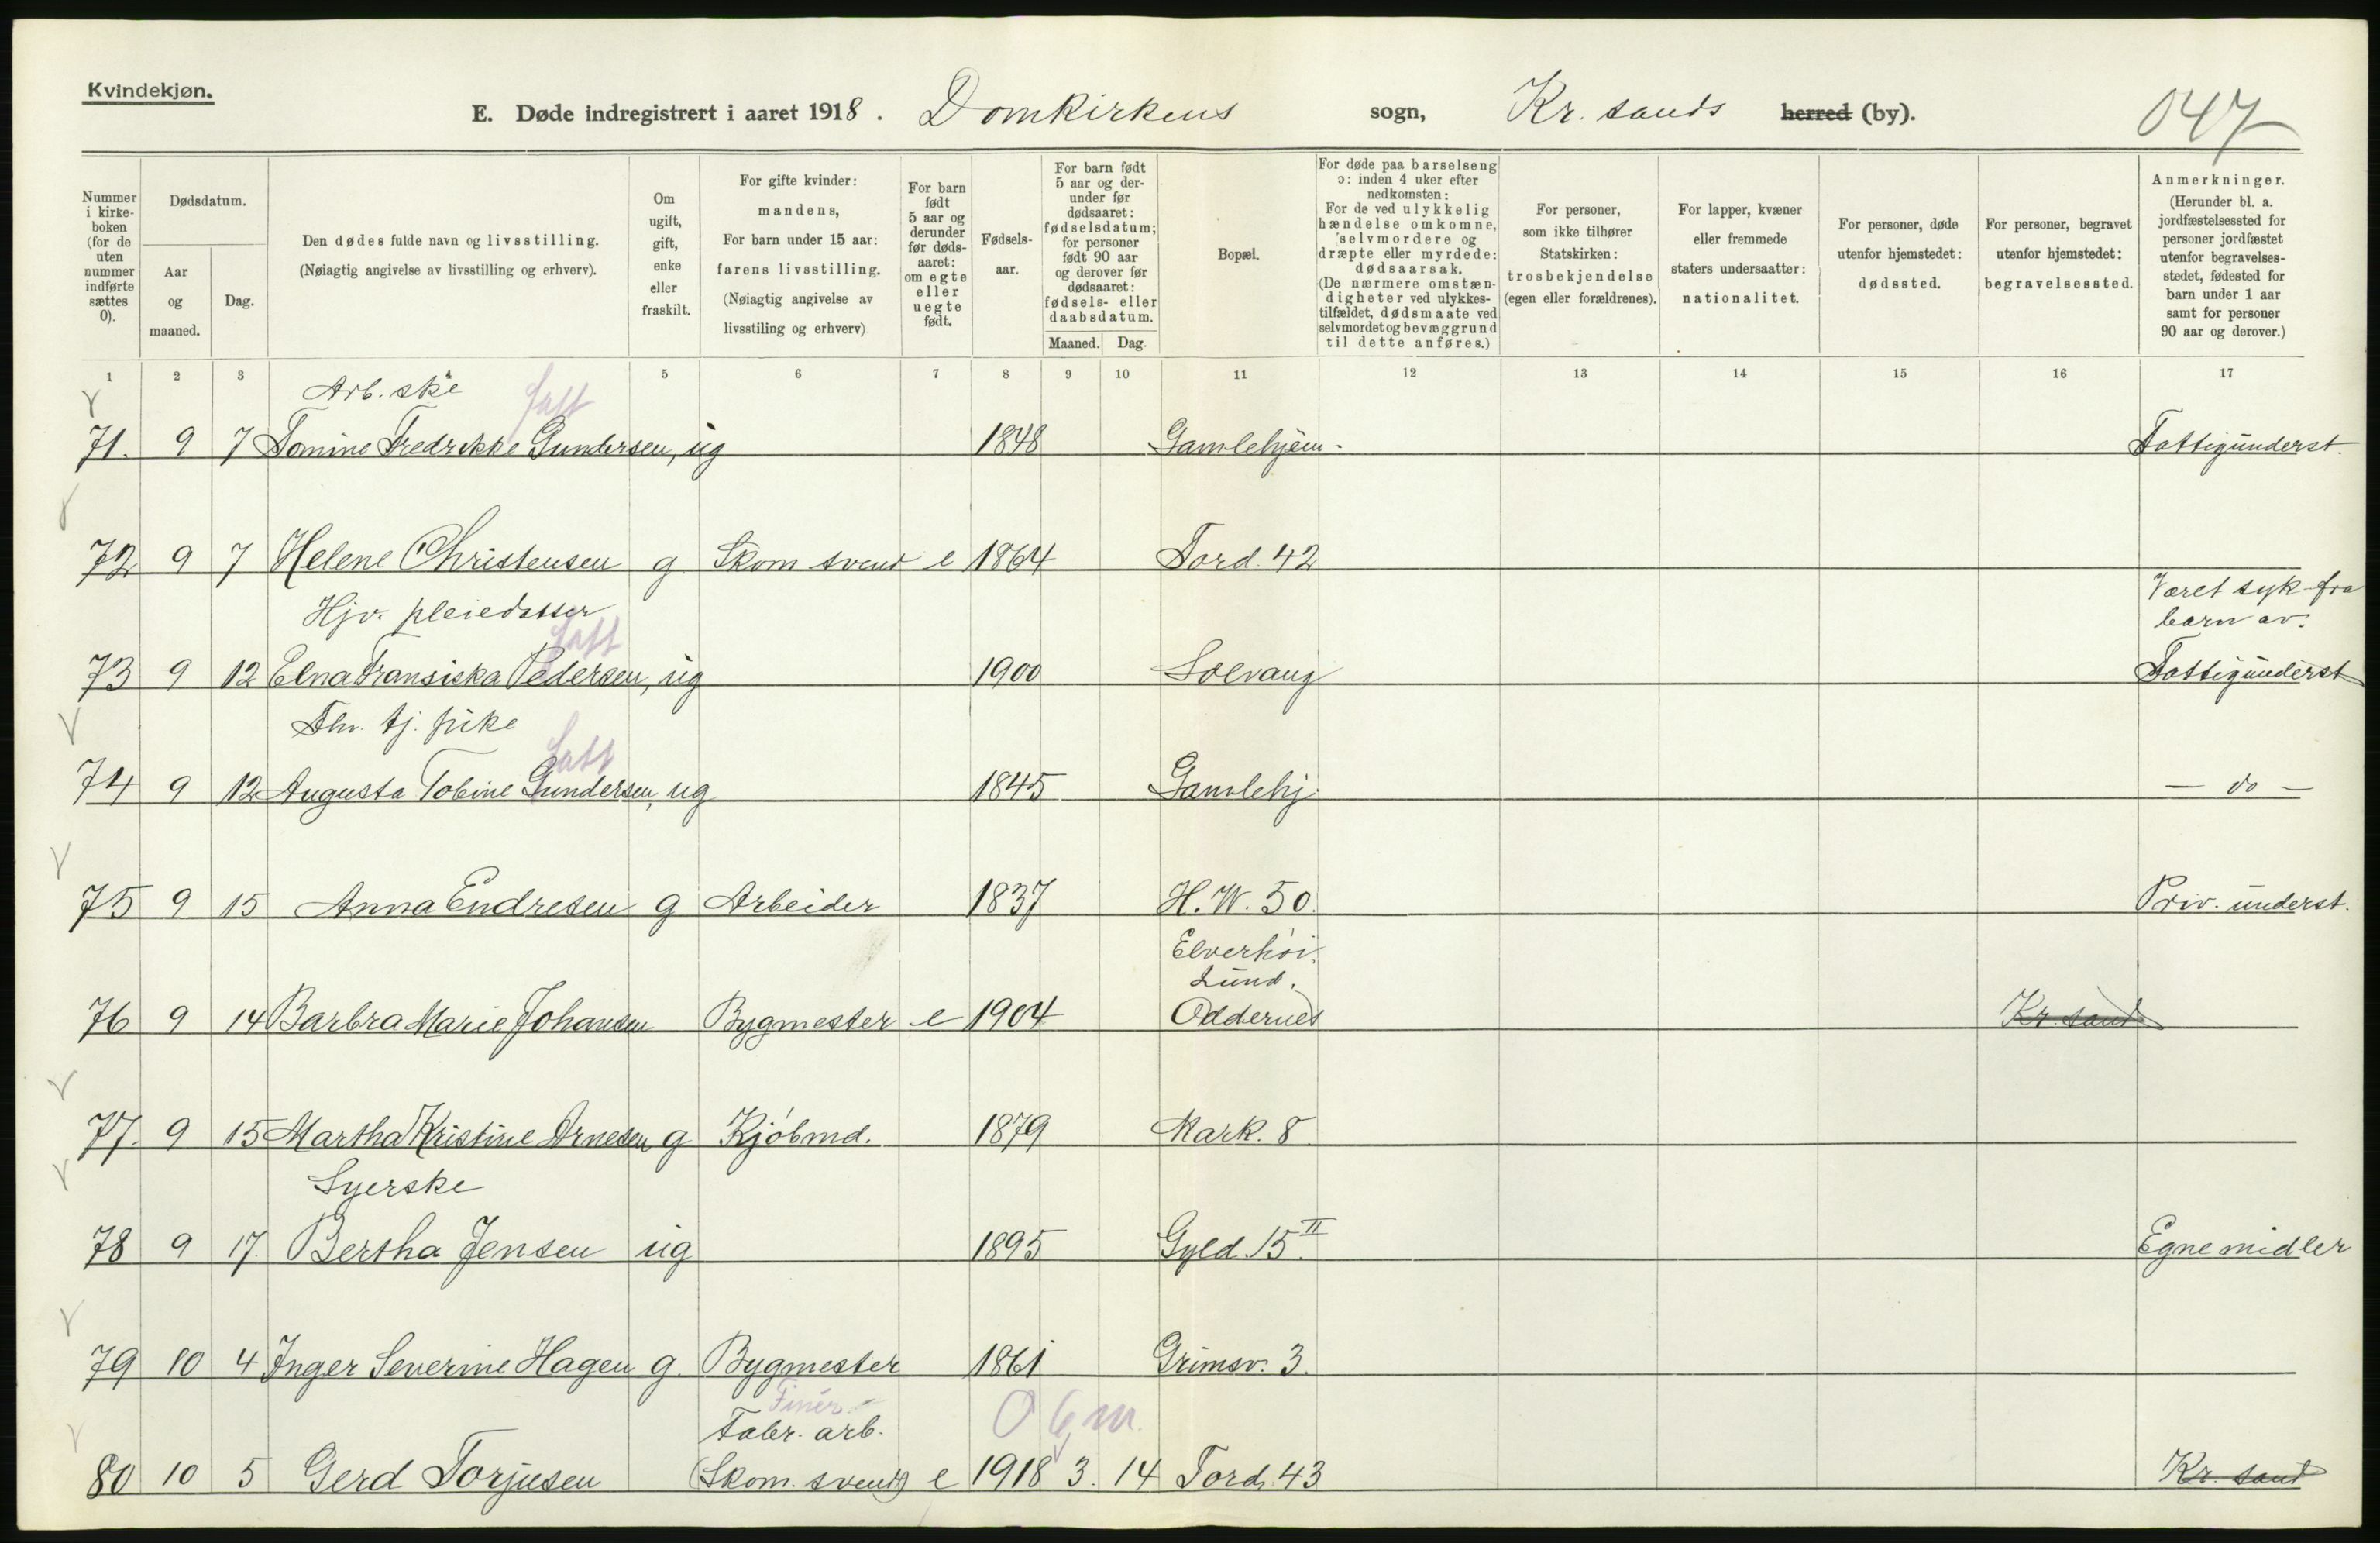 Kvindekjøn.
E. Døde indregistrert i aaret 1918. Domkirkens sogn, Kr. sands herred (by). 047
Nummer i kirkeboken (for de uten nummer indførte sættes 0).
Dødsdatum.
Aar og maaned.
Dag.
Den dødes fulde navn og livsstilling.
(Nøiagtig angivelse av livsstilling og erhverv).
Om ugift, gift, enke eller fraskilt.
For gifte kvinder: mandens,
For barn under 15 aar: farens livsstilling.
(Nøiagtig angivelse av livsstiling og erhverv)
For barn født 5 aar og derunder før dødsaaret: om egte eller uegte født.
Fødselsaar.
For barn født 5 aar og derunder før dødsaaret: fødselsdatum; for personer født 90 aar og derover før dødsaaret: fødsels- eller daabsdatum.
Maaned. Dag.
Bopæl.
For døde paa barselseng ɔ: inden 4 uker efter nedkomsten:
For de ved ulykkelig hændelse omkomne, selvmordere og dræpte eller myrdede: dødsaarsak.
(De nærmere omstændigheter ved ulykkestilfældet, dødsmaate ved selvmordet og bevæggrund til dette anføres.)
For personer, som ikke tilhører Statskirken: trosbekjendelse (egen eller forældrenes).
For lapper, kvæner eller fremmede staters undersaatter: nationalitet.
For personer, døde utenfor hjemstedet: dødssted.
For personer, begravet utenfor hjemstedet: begravelsessted.
Anmerkninger.
(Herunder bl. a. jordfæstelsessted for personer jordfæstet utenfor begravelsesstedet, fødested for barn under 1 aar samt for personer 90 aar og derover.)
1 2 3 4 5 6 7 8 9 10 11 12 13 14 15 16 17
Arb. ske
71. 9 7 Tomine Fredrikke Gundersen, ug 1848 Gamlehjem. Fattigunderst.
72 9 7 Helene Christensen g. Skom svend e 1864 Tord. 42
Hjv. pleiedatter Været syk fra
barn av.
73 9 12 Elna Fransiska Pedersen, ug 1900 Solvang Fattigunderst
Fhv. tj. pike
74 9 12 Augusta Tobine Gundersen, ug 1845 Gamlehj. — do —
75 9 15 Anna Endresen g Arbeider 1837 H. W. 50. Priv. underst.
Elverhöi.
Lund.
76 9 14 Barbra Marie Johansen Bygmester e 1904 Oddernes Kr. sand
77. 9 15 Martha Kristine Arnesen g Kjöbmd. 1879 Mark. 8
Syerske
78 9 17. Bertha Jensen ug 1895 Gyld. 15 II Egne midler
79 10 4 Inger Severine Hagen g. Bygmester 1861 Grimsv. 3.
Finér-
Fabr. arb. 0 6 m.
80 10 5 Gerd Torjusen (Skom. svend) e 1918 3. 14 Tord. 43 Kr. sand